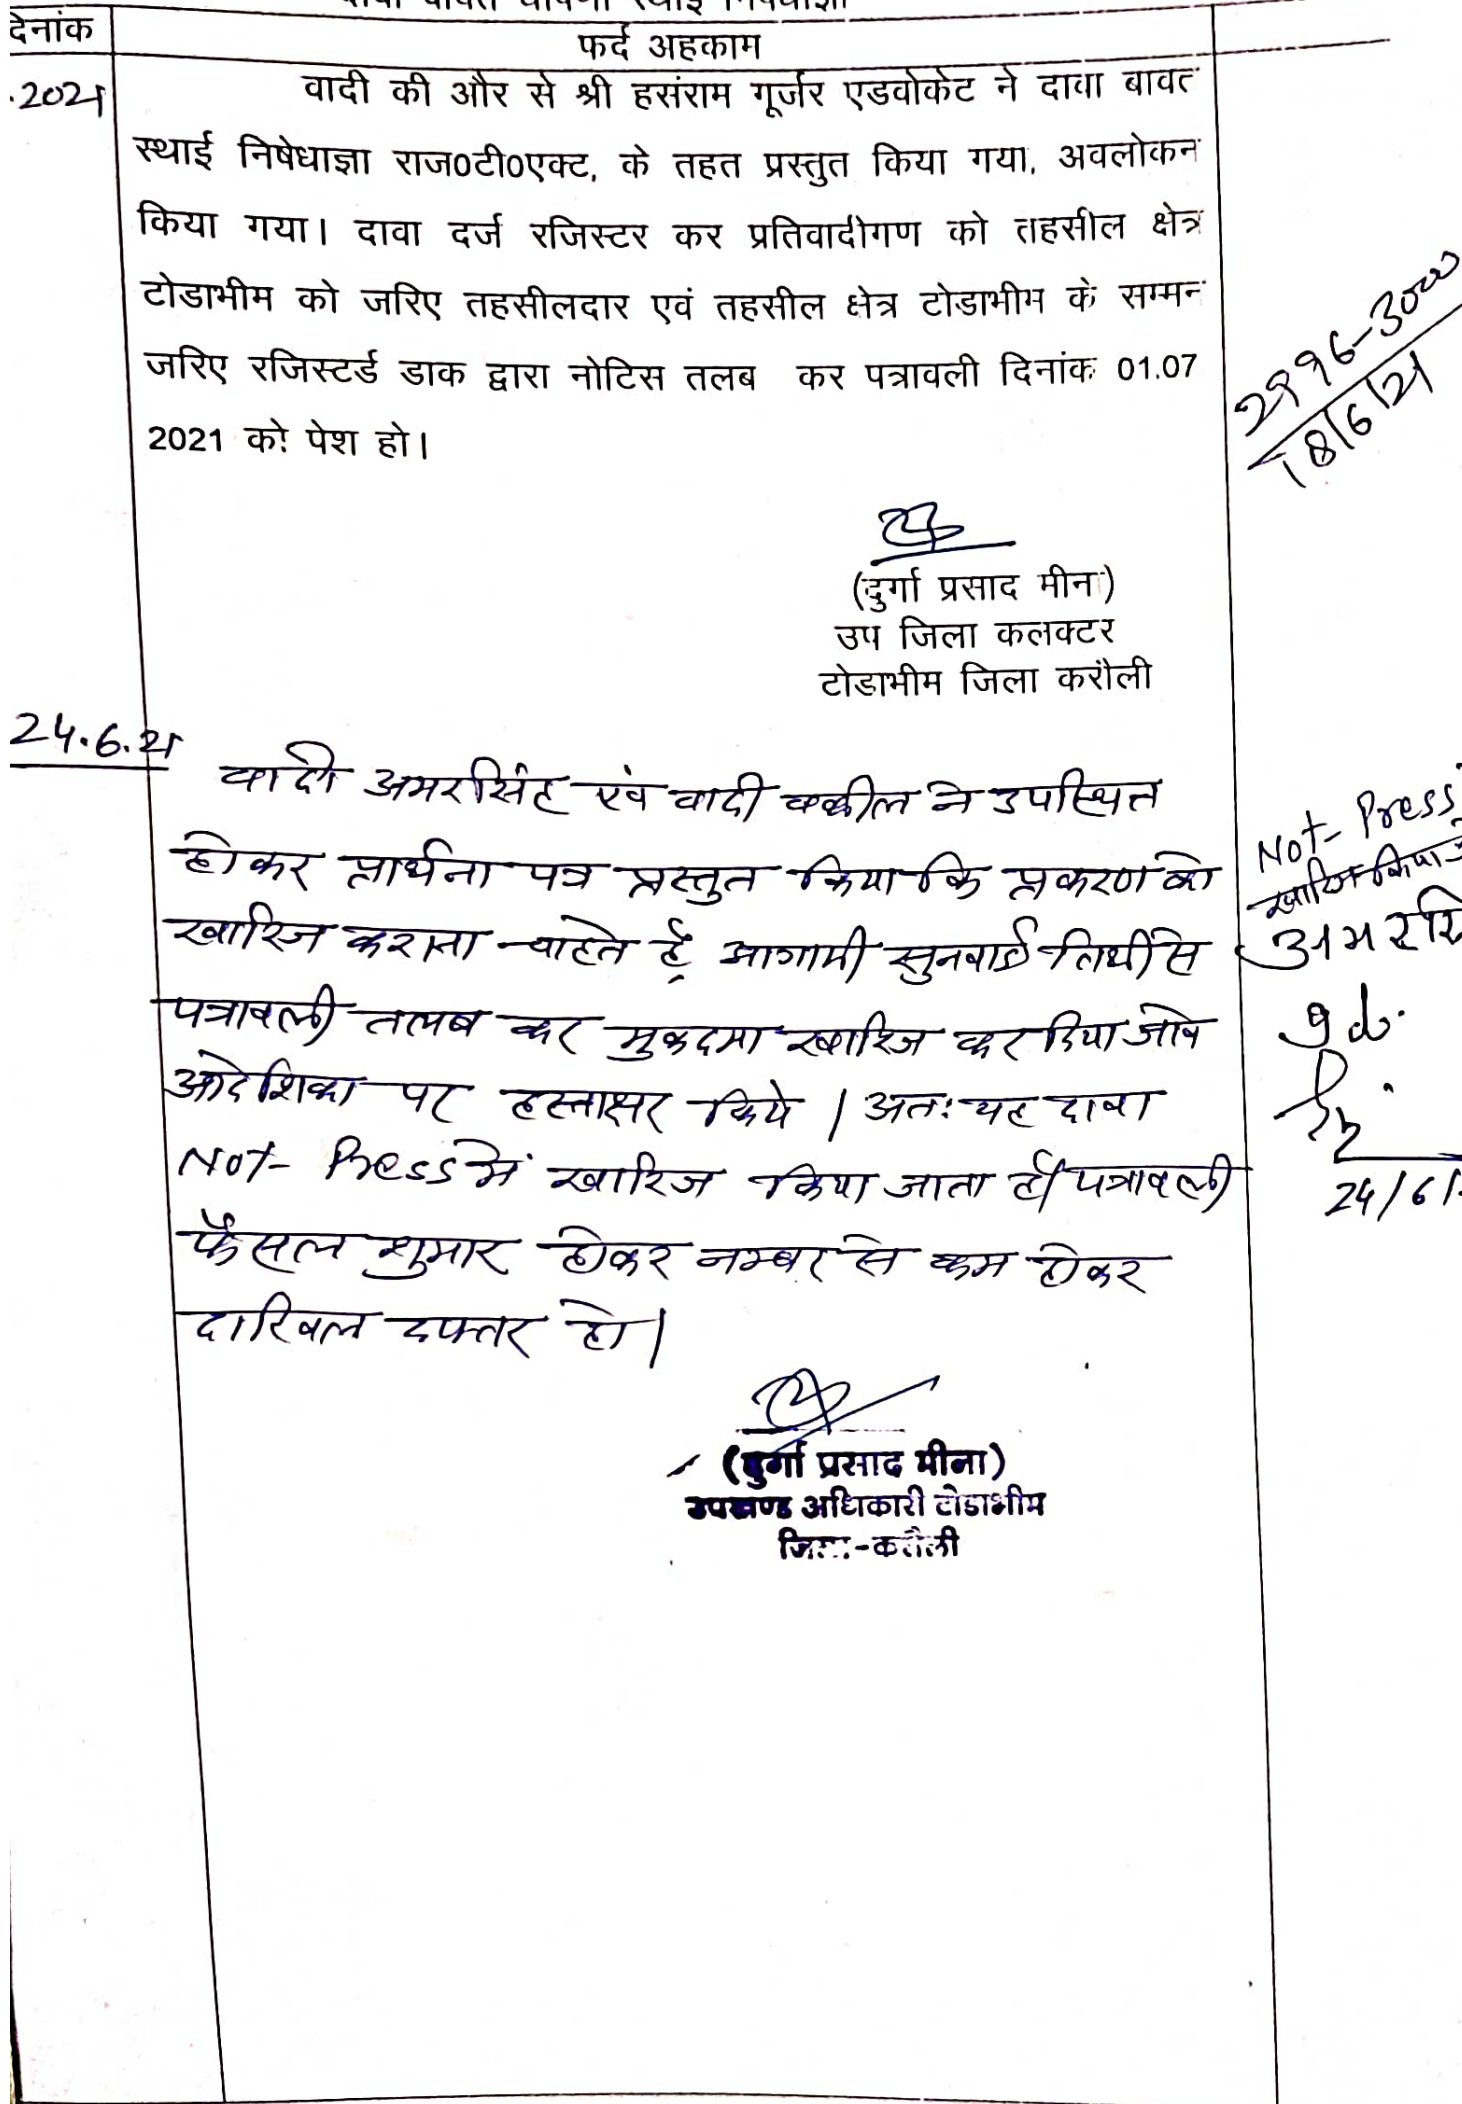 दिनांक
फर्द अहकाम
.2021
वादी की और से श्री हसंराम गूर्जर एडवोकेट ने दावा बावत
स्थाई निषेधाज्ञा राज0टी0एक्ट, के तहत प्रस्तुत किया गया, अवलोकन
किया गया। दावा दर्ज रजिस्टर कर प्रतिवादीगण को तहसील क्षेत्र
टोडाभीम को जरिए तहसीलदार एवं तहसील क्षेत्र टोडाभीम के सम्मन
जरिए रजिस्टर्ड डाक द्वारा नोटिस तलब कर पत्रावली दिनांक 01.07
2021 को पेश हो।
2996-3000
18/6/21
(दुर्गा प्रसाद मीना)
उप जिला कलक्टर
टोडाभीम जिला करौली
24.6.21
वादी अमरसिंह एंव वादी वकील ने उपस्थित
होकर प्रार्थना पत्र प्रस्तुत किया कि प्रकरण को
खारिज कराना चाहते है, आगामी सुनवाई तिथी से
पत्रावली तलब कर मुकदमा खारिज कर दिया जावे
आदेशिका पर हस्ताक्षर किये। अतः यह दावा
Not-Press में खारिज किया जाता है। पत्रावली
फैसल शुमार होकर नम्बर से कम होकर
दाखिल दफ्तर हो।
Not-Press
खारिज किया
24/6/
(दुर्गा प्रसाद मीना)
उपखण्ड अधिकारी टोडाभीम
जिला-करौली